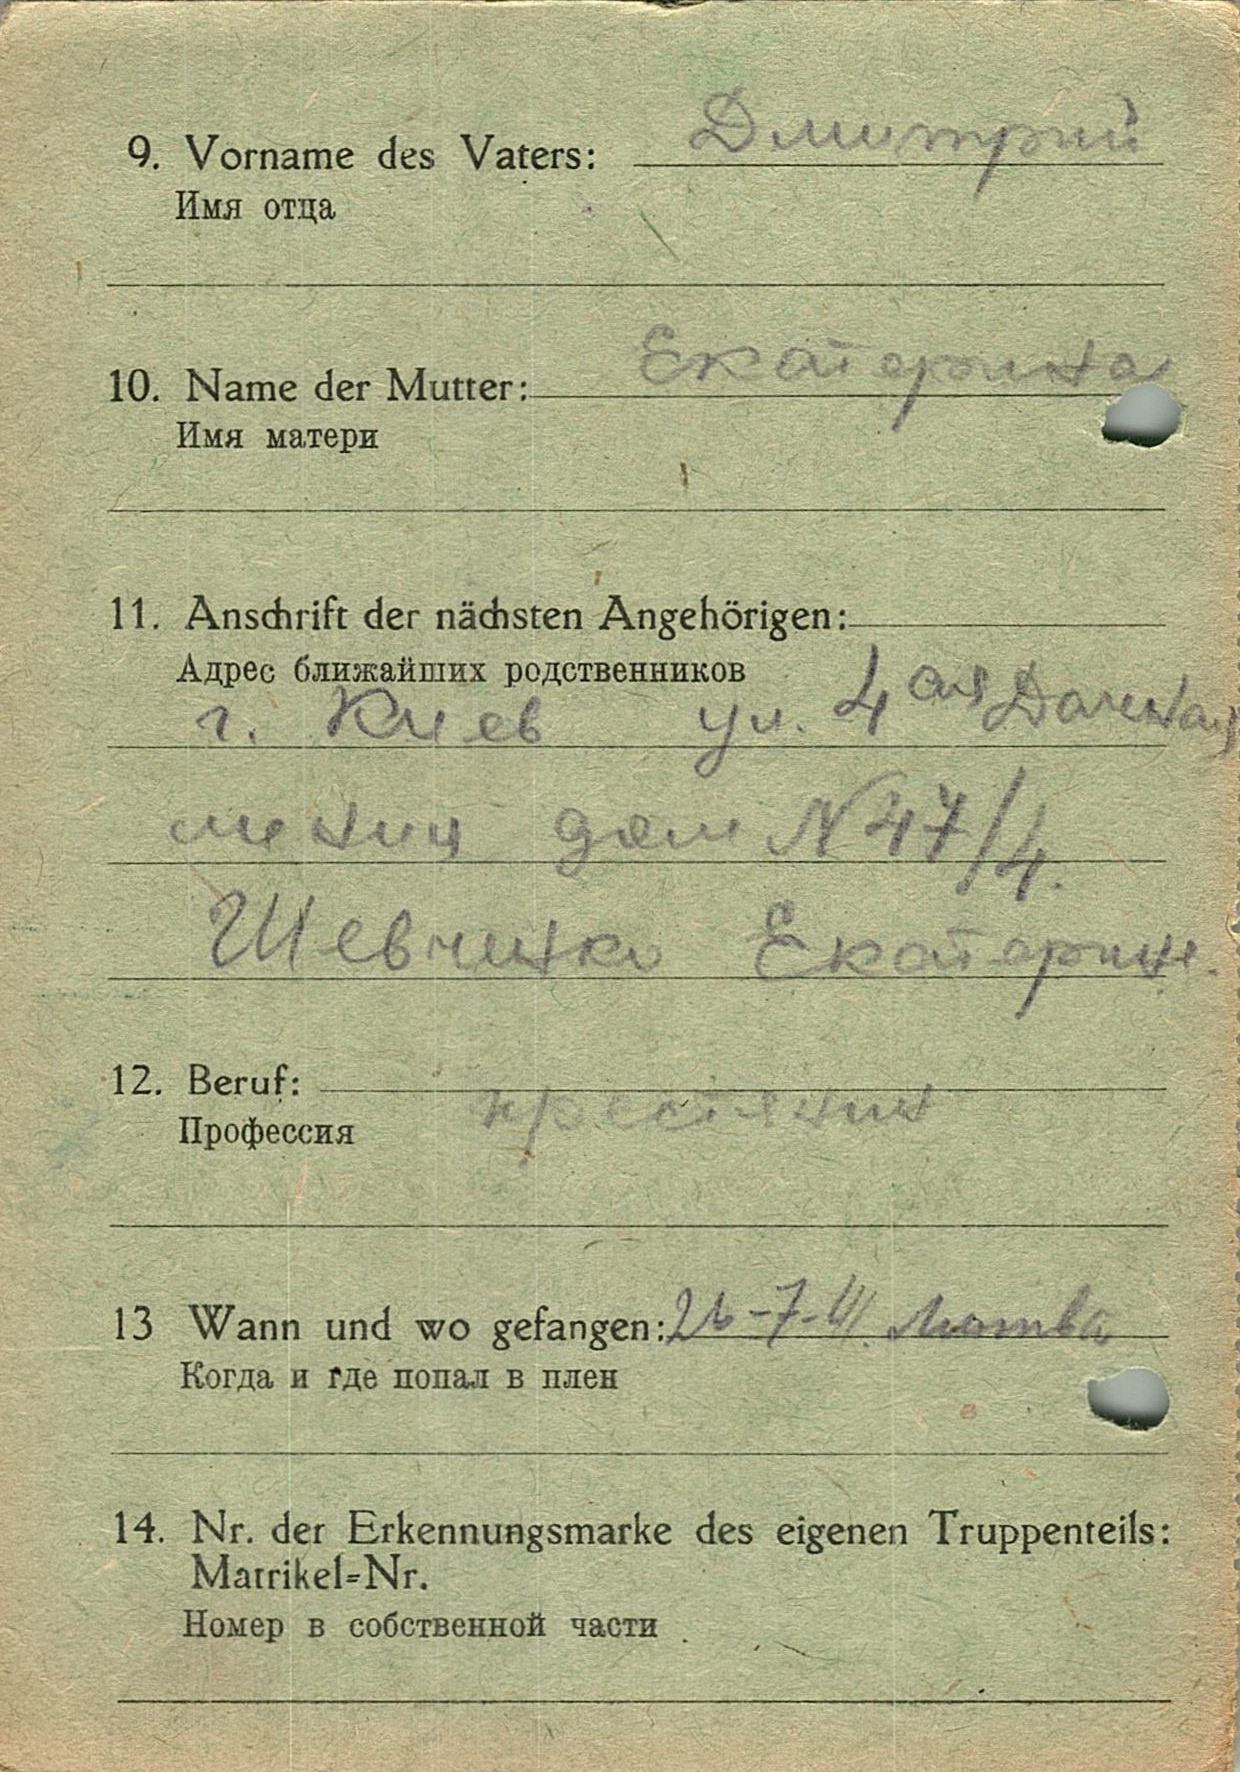 9. Vorname des Vaters: Дмитрий
Имя отца
10. Name der Mutter: Екатерина
Имя матери
11. Anschrift der nächsten Angehörigen:
Адрес ближайших родственников
г. Киев ул. 4 ая
дом N 47/4.
Шевченко Екатерине.
12. Beruf:
Профессия крестянин
13 Wann und wo gefangen: 26-7- Литва
Когда и где попал в плен
14. Nr. der Erkennungsmarke des eigenen Truppenteils:
Matrikel=Nr.
Номер в собственной части